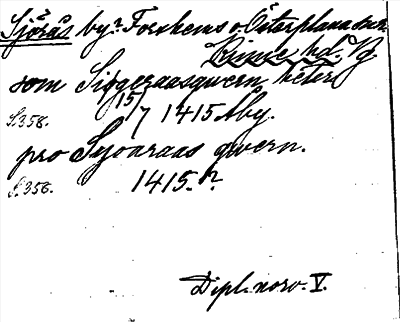 Sjörås by. Forshems o. Österplana snr
Kinne hd. Vg
som Siggeraasqwern heter
S. 358. 15/7 1415 Aby.
pro Syoaraas qwern.
S. 358. 1415.
Dipl. norv. V.